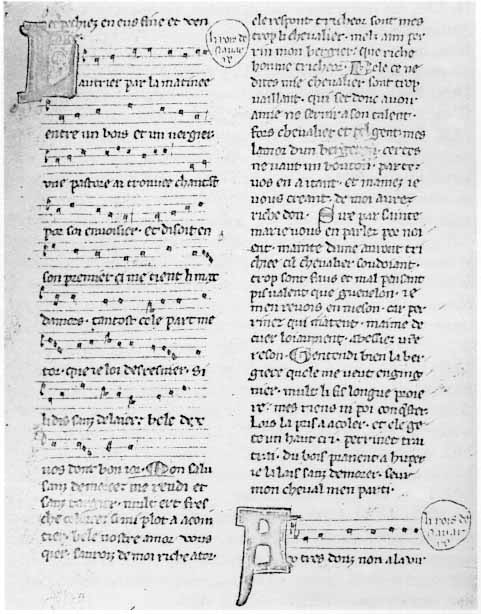 li rois de
nauar
re
L autrier par la matinee
entre un bois et un uergier
une pastore ai trouuee chantāt
por soi enuoisier. et disoit en
son premier ci me tient li max
damors. tantost cele part me
tor. que ie loi desresnier. si
li dis sanz delaier. bele dex
uos doint bon ior. Mon salu
sanz demorer. me rendi et
sanz targier. mult ert fres
che coloree si mi plot a acoin
tier. bele uostre amor uous
quier. sauroiz de moi riche ator.
ele respont tricheor sont mes
trop li cheualier. melz aim per
rin mon bergier. que riche
honme tricheor. Bele ce ne
dites mie cheualier sont trop
uaillant. qui set donc auoir
amie ne seruir a son talent.
fors cheualier et tel gent. mes
lamor dun bergeron. certes
ne uaut un bouton. partez
uos en a itant. et mamez ie
uous creant. de moi aurez
riche don. Sire par sainte
marie uous en parlez por noi
ent. mainte dame auront tri
chiee cil cheualier soudoiant.
trop sont faus et mal pensant
pis ualent que guenelon. ie
men reuois en meson. car per
rinez qui matent. maime de
cuer loiaument. abessiez uostre
reson. Gentendi bien la ber
giere quele me ueut enging
nier. mult li fis longue proie
re. mes riens ni poi conquester.
lors la pris a acoler. et ele ge
te un haut cri. perrinet trai
trai. du bois prenent a huper
ie la lais sanz demorer. seur
mon cheual men parti.
li rois de
nauar
re
A utres donz non a la uir